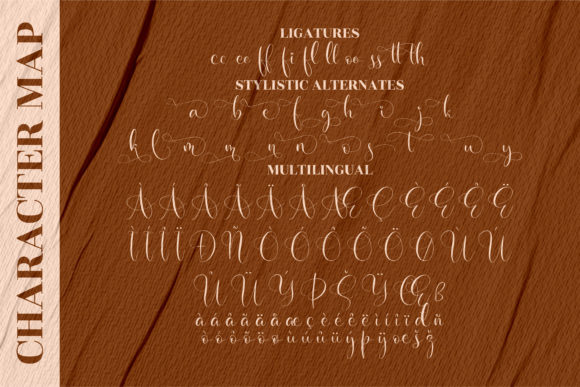 CHARACTER MAP
LIGATURES
cc ee ff fi fl ll oo ss tt th
STYLISTIC ALTERNATES
a b e f g h i j k
k l m r n n o s t u y
MULTILINGUAL
À Á Â Ã Ä Å Æ Ç È É Ê Ë
Ì Í Î Ï Ð Ñ Ò Ó Ô Õ Ö Ø Ù Ú
Û Ü Ý Þ Š Ÿ Œ ß
à á â ã ä å æ ç è é ê ë ì í î ï ð ñ
ò ó ô õ ö ø ù û ü ý þ ÿ œ š ž